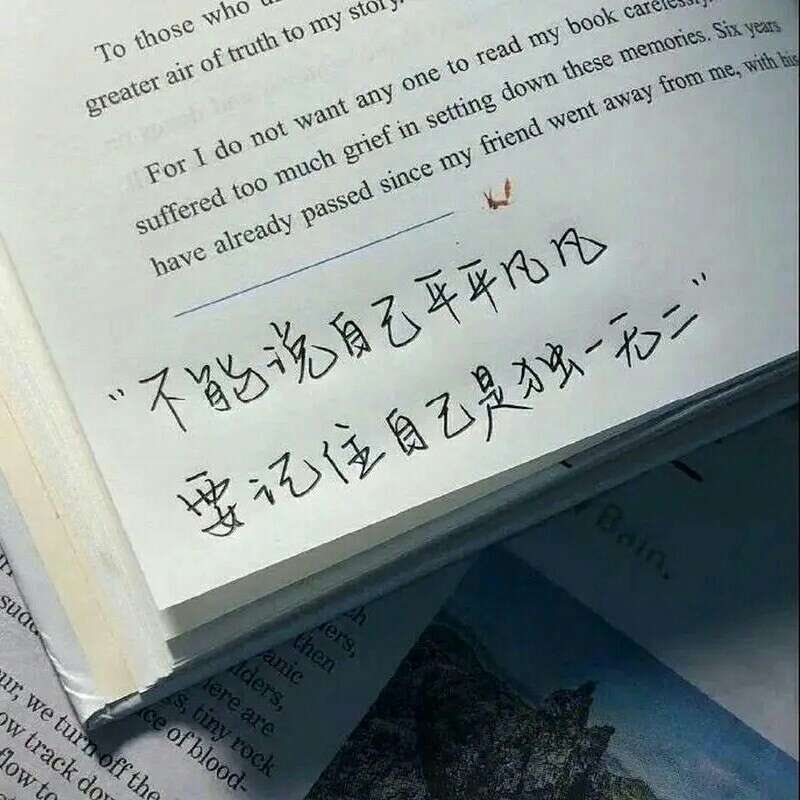 To those who
greater air of truth to my story.
For I do not want any one to read my book carelessly.
suffered too much grief in setting down these memories. Six years
have already passed since my friend went away from me, with his
“不能说自己平平凡凡
要记住自己是独一无二”
Bain.
then
anic
ders,
here are
s, tiny rock
ce of blood-
ur, we turn off the
ow track down
flow to